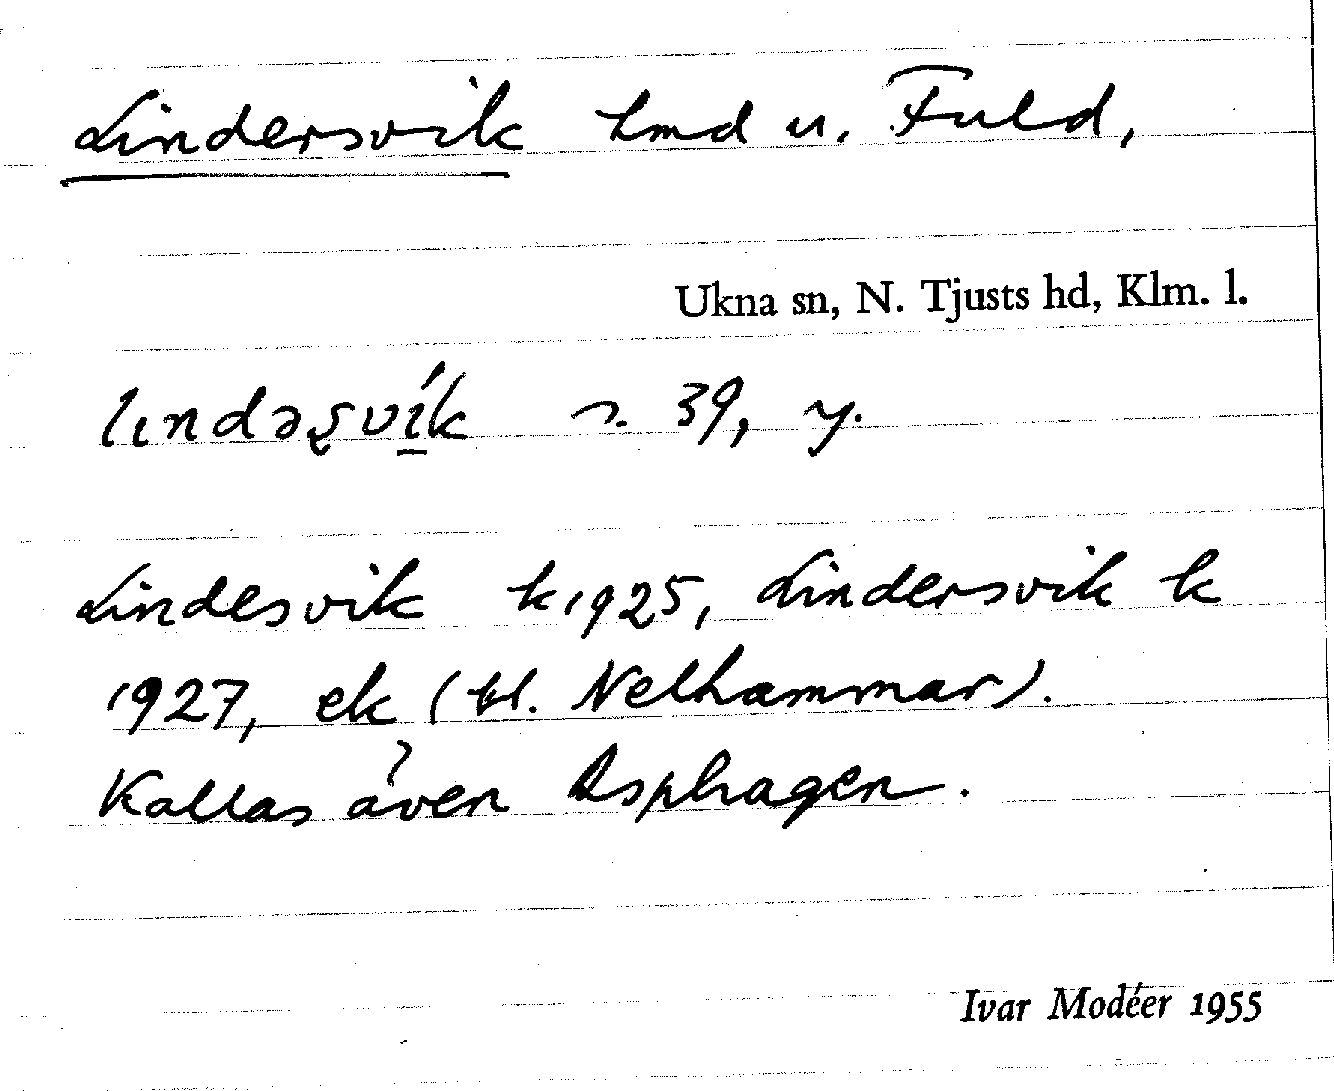 Lindersvik hmd u. Fuld,
Ukna sn, N. Tjusts hd, Klm. l.
lındəʂvı̱́k s. 39, y.
Lindesvik k 1925, Lindersvik k
1927, ek (bl. Nelhammar).
Kallas även Asphagen.
Ivar Modéer 1955